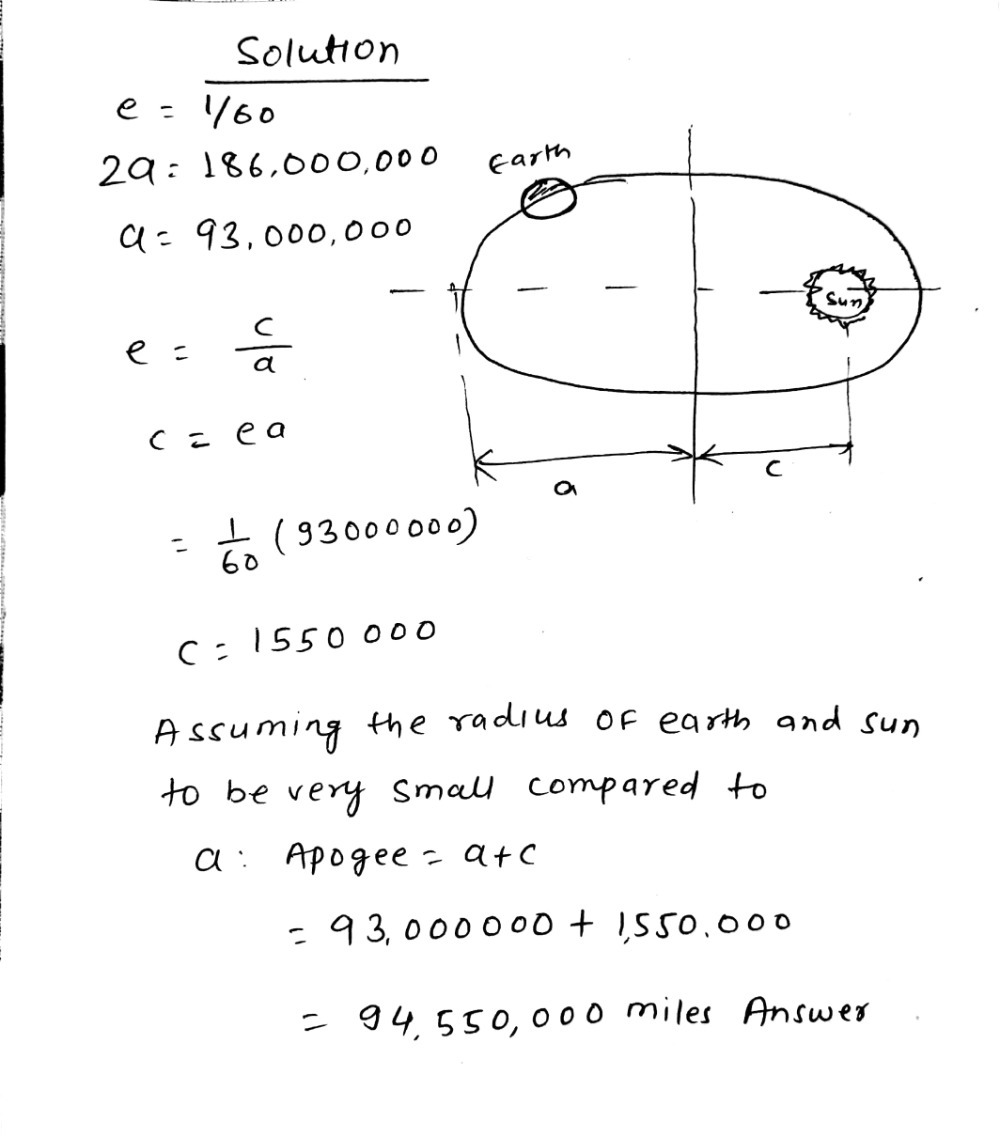 Solution
e = 1/60
2a = 186,000,000
Earth
a = 93,000,000
Sun
e = c/a
c = ea
a
c
= 1/60 (93000000)
c = 1550 000
Assuming the radius of earth and sun
to be very small compared to
a: Apogee = a+c
= 93,000000 + 1,550.000
= 94,550,000 miles Answer